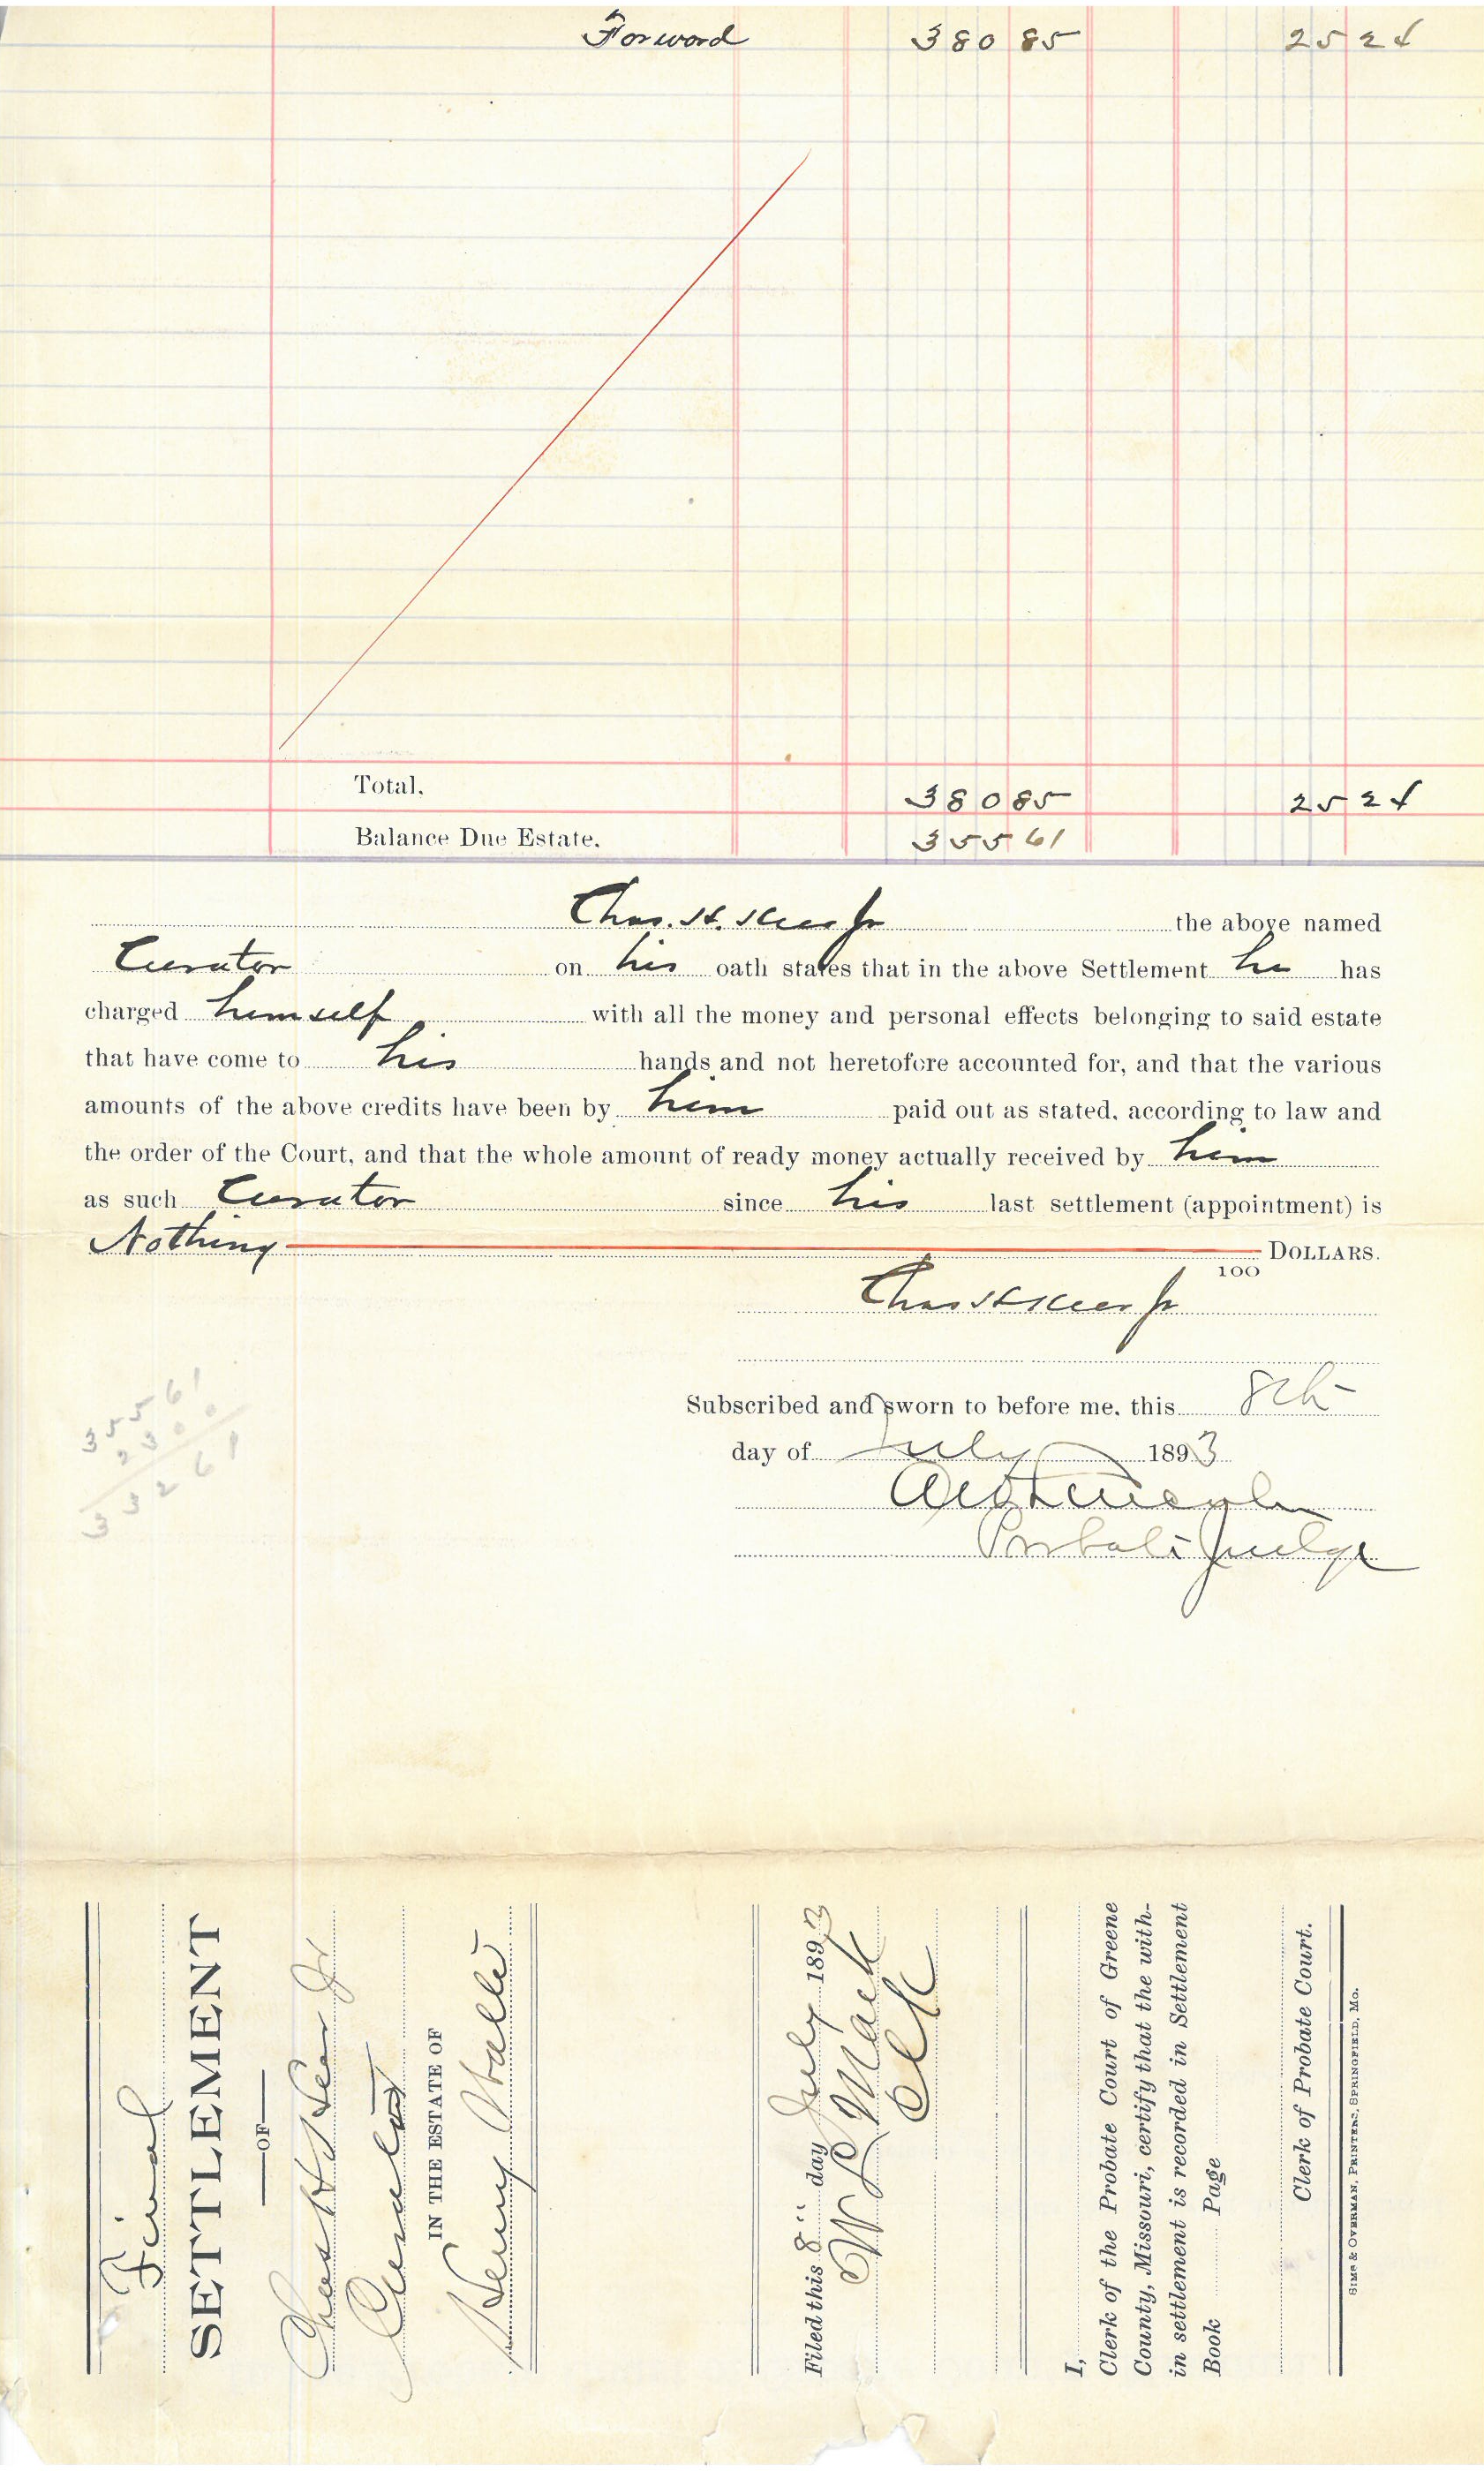 Forward 380 85 25 24
Total. 380 85 25 24
Balance Due Estate. 355 61
Chas. H. Heer Jr the above named
Curator on his oath states that in the above Settlement he has
charged himself with all the money and personal effects belonging to said estate
that have come to his hands and not heretofore accounted for, and that the various
amounts of the above credits have been by him paid out as stated, according to law and
the order of the Court, and that the whole amount of ready money actually received by him
as such Curator since his last settlement (appointment) is
Nothing DOLLARS.
100
Chas H Heer Jr
355 61
23 00
332 61
Subscribed and sworn to before me, this 8th
day of July 1893
Probate Judge
Final
SETTLEMENT
OF
Chas H Heer Jr
Curator
IN THE ESTATE OF
Henry
Filed this 8" day July 1893
W L Mack
Clk
I,
Clerk of the Probate Court of Greene
County, Missouri, certify that the with-
in settlement is recorded in Settlement
Book Page
Clerk of Probate Court.
SIMS & OVERMAN, PRINTERS, SPRINGFIELD, MO.